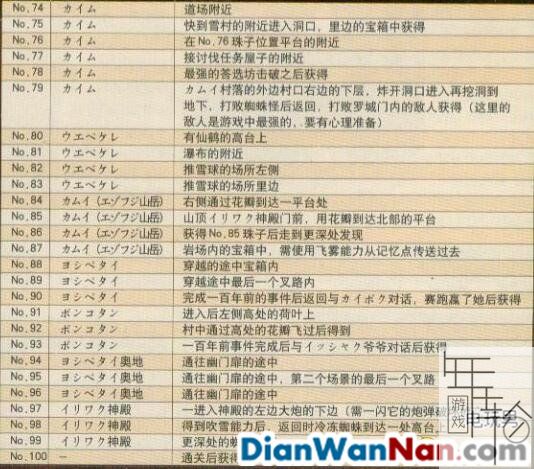 No.74 カイム 道场附近
No.75 カイム 快到雪村的附近进入洞口，里边的宝箱中获得
No.76 カイム 在No.76珠子位置平台的附近
No.77 カイム 接讨伐任务屋子的附近
No.78 カイム 最强的答选坊击破之后获得
No.79 カイム カムイ村落的外边村口右边的下层，炸开洞口进入再挖洞到
地下，打败蜘蛛怪后返回，打败罗城门内的敌人获得（这里的
敌人是游戏中最强的、要有心理准备）
No.80 ウエペケレ 有仙鹤的高台上
No.81 ウエペケレ 瀑布的附近
No.82 ウエペケレ 推雪球的场所左侧
No.83 ウエペケレ 推雪球的场所里边
No.84 カムイ（エゾフジ山岳） 右侧通过花瓣到达一平台处
No.85 カムイ（エゾフジ山岳） 山顶イリワク神殿门前，用花瓣到达北部的平台
No.86 カムイ（エゾフジ山岳） 获得No.85珠子后走到更深处发现
No.87 カムイ（エゾフジ山岳） 岩场内的宝箱中，需使用飞雾能力从记忆点传送过去
No.88 ヨシペタイ 穿越的途中宝箱内
No.89 ヨシペタイ 穿越途中最后一个叉路内
No.90 ヨシペタイ 完成一百年前的事件后返回与カイポク对话，赛跑赢了她后获得
No.91 ポンコタン 进入后左侧高处的荷叶上
No.92 ポンコタン 村中通过高处的花瓣飞过后得到
No.93 ポンコタン 一百年前事件完成后与イッシャク爷爷对话后获得
No.94 ヨシペタイ奥地 通往幽门扉的途中
No.95 ヨシペタイ奥地 通往幽门扉的途中，第二个场景的最后一个叉路
No.96 ヨシペタイ奥地 通往幽门扉的途中
No.97 イリワク神殿 一进入神殿的左边大炮的下边（需一闪它的炮弹
No.98 イリワク神殿 得到吹雪能力后、返回时冷冻蜘蛛到达一处高台上
No.99 イリワク神殿 更深处的
No.100 — 通关后获得
游戏
电玩男
DianWanNan.com